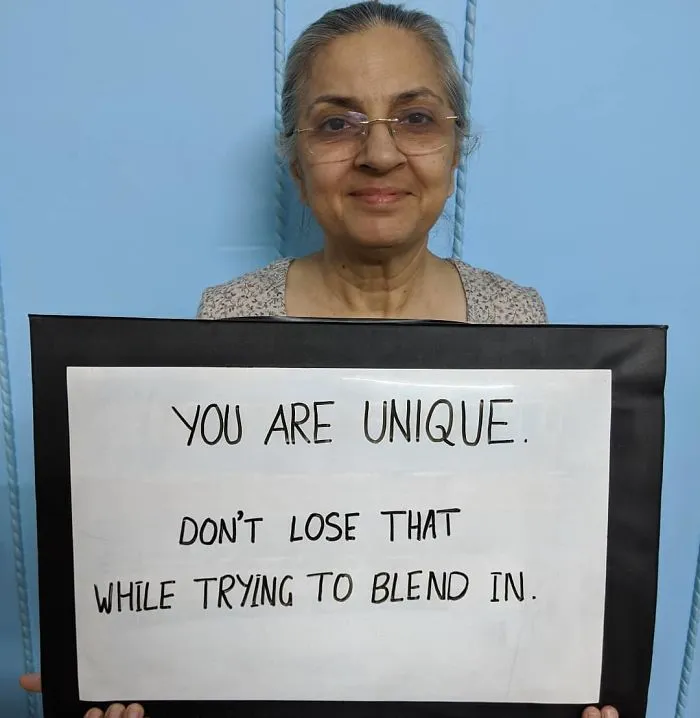 YOU ARE UNIQUE.
DON'T LOSE THAT
WHILE TRYING TO BLEND IN.